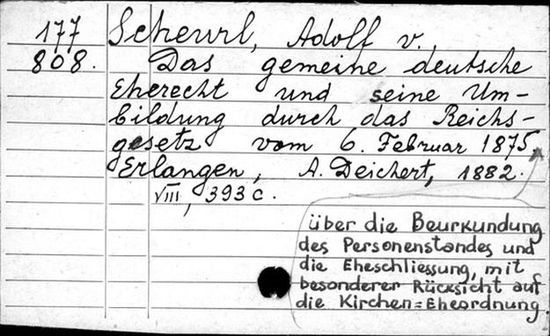 177
808.
Scheurl, Adolf v.
Das gemeine deutsche
Eherecht und seine Um-
bildung durch das Reichs-
gesetz vom 6. Februar 1875.
Erlangen, A. Deichert, 1882.
VIII, 393 c.
über die Beurkundung
des Personenstandes und
die Eheschliessung, mit
besonderer Rücksicht auf
die Kirchen=Eheordnung.